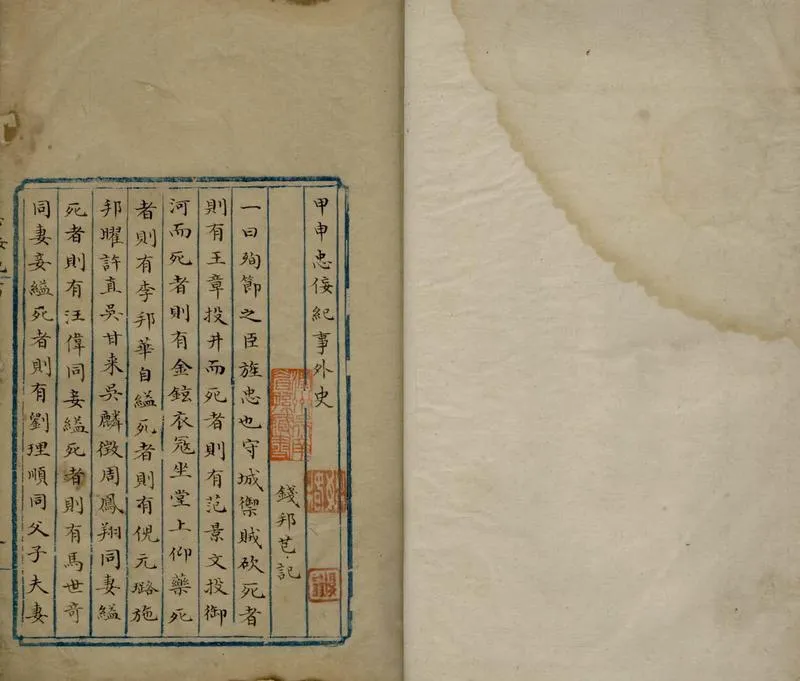 甲申忠佞紀事外史
錢邦芑記
一曰殉節之臣旌忠也守城禦賊砍死者
則有王章投井而死者則有范景文投御
河而死者則有金鉉衣冠坐堂上仰藥死
者則有李邦華自縊死者則有倪元璐施
邦曜許直吳甘来吳麟徵周鳳翔同妻縊
死者則有汪偉同妾縊死者則有馬世竒
同妻妾縊死者則有劉理順同父子夫妻